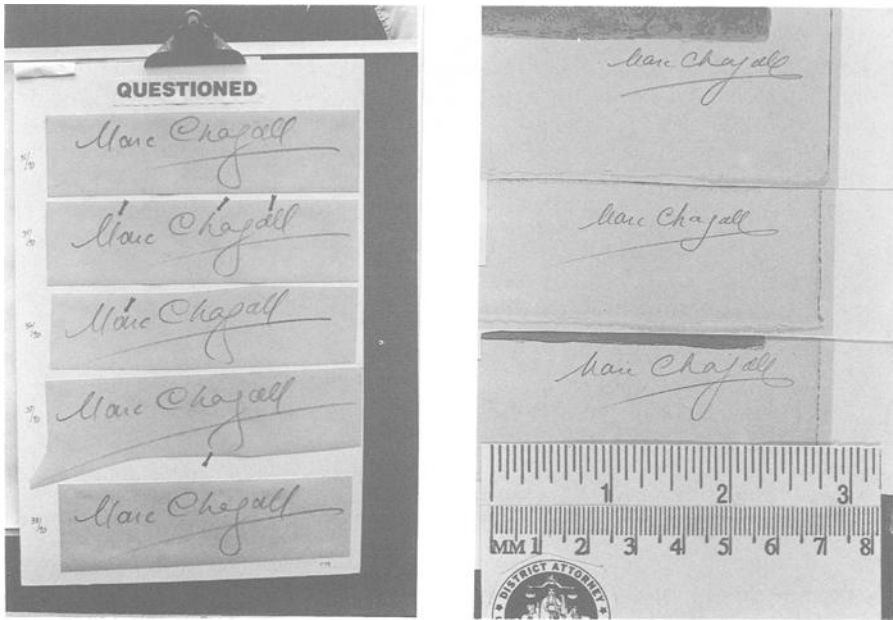 QUESTIONED
Marc Chagall
Marc Chagall
Marc Chagall
Marc Chagall
Marc Chagall
Marc Chagall
Marc Chagall
Marc Chagall
1 2 3
MM 1 2 3 4 5 6 7 8
DISTRICT ATTORNEY